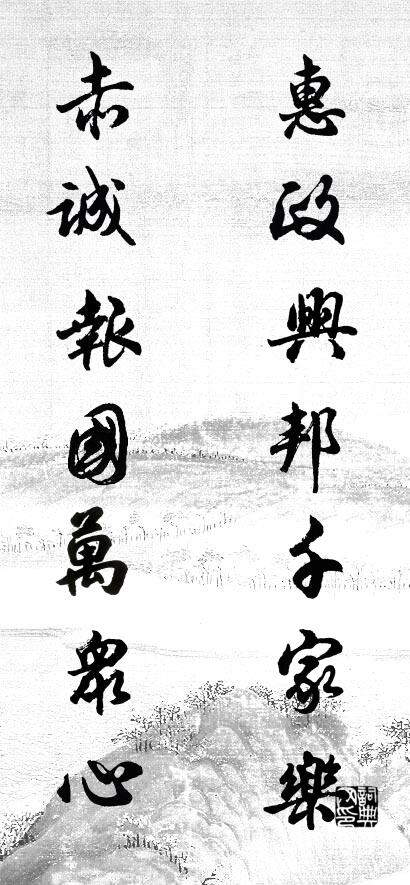 惠政興邦千家樂
赤誠報國萬眾心